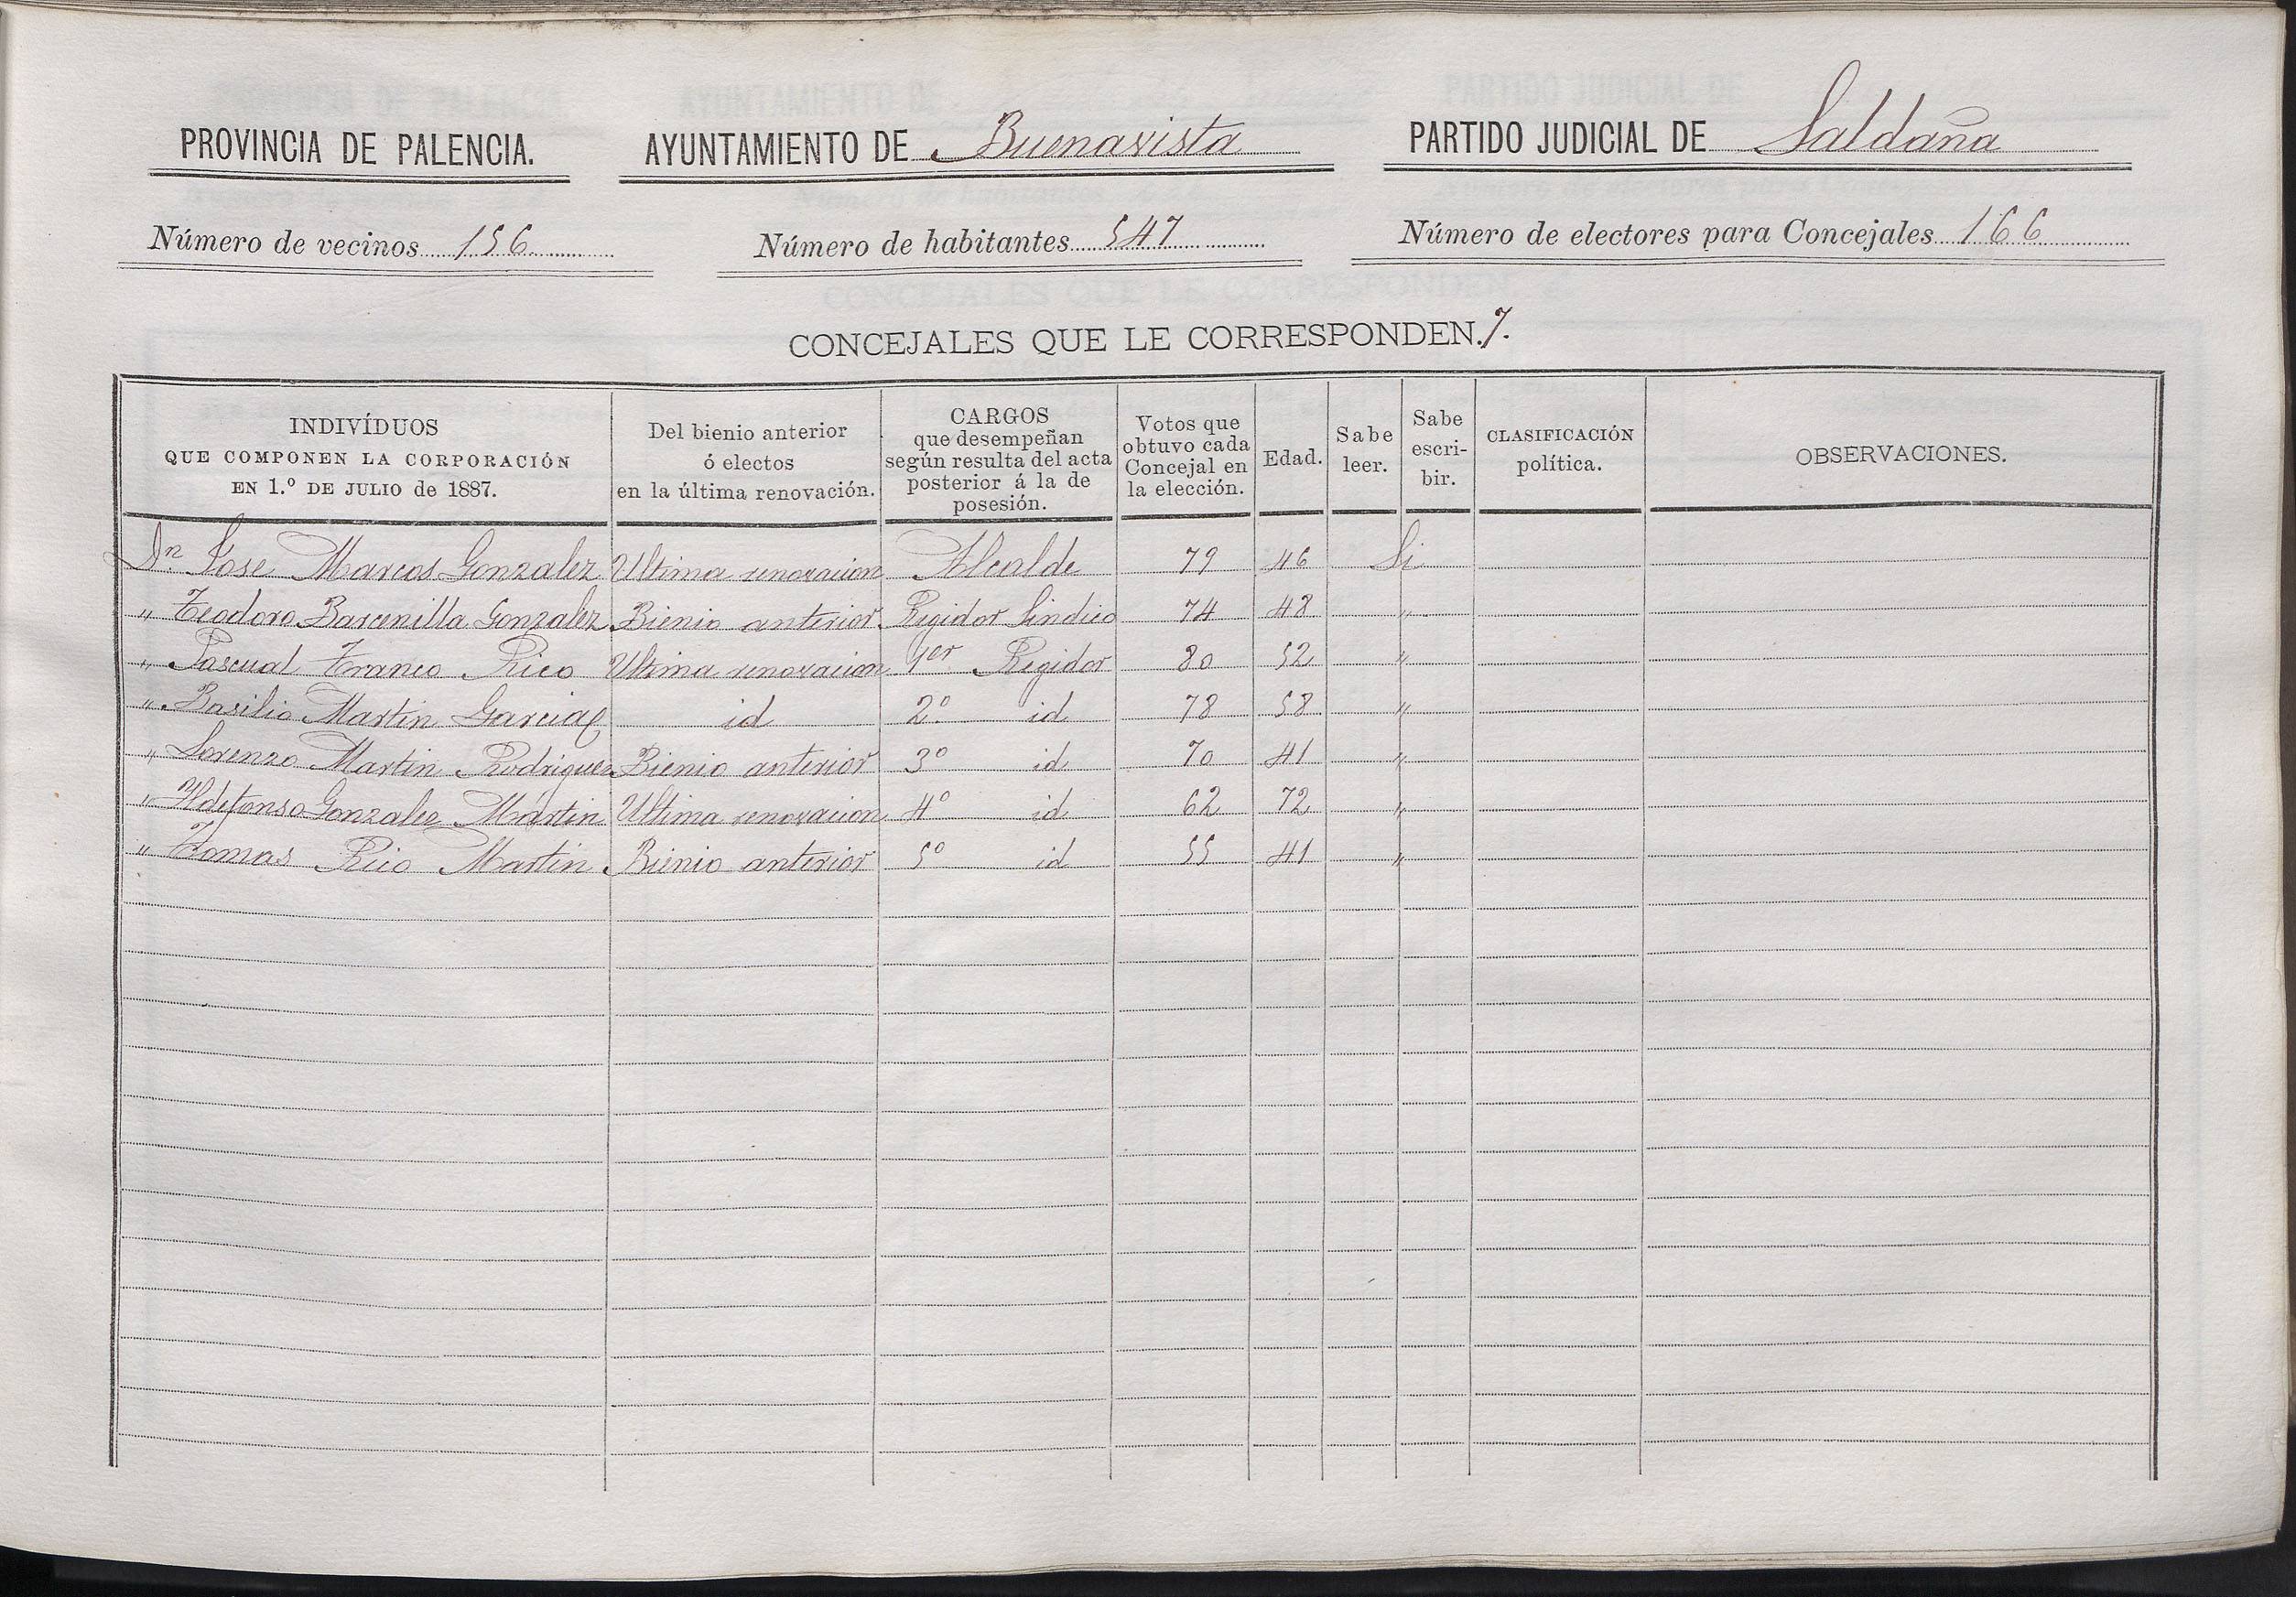 PROVINCIA DE PALENCIA. AYUNTAMIENTO DE Buenavista PARTIDO JUDICIAL DE Saldaña
Número de vecinos 156 Número de habitantes 547 Número de electores para Concejales 166
CONCEJALES QUE LE CORRESPONDEN. 7.
INDIVÍDUOS
QUE COMPONEN LA CORPORACIÓN
EN 1.º DE JULIO de 1887.
Del bienio anterior
ó electos
en la última renovación.
CARGOS
que desempeñan
según resulta del acta
posterior á la de
posesión.
Votos que
obtuvo cada
Concejal en
la elección.
Edad.
Sabe
leer.
Sabe
escri-
bir.
CLASIFICACIÓN
política.
OBSERVACIONES.
Dn. Jose Marcos Gonzalez Ultima renovacion Alcalde 79 46 Si
" Teodoro Barcenilla Gonzalez Bienio anterior Regidor Sindico 74 48 "
" Pascual Franco Rico Ultima renovacion 1er Regidor 80 52 "
" Basilio Martin Garcia id 2º id 78 58 "
" Lorenzo Martin Rodriguez Bienio anterior 3º id 70 41 "
" Yldefonso Gonzalez Martin Ultima renovacion 4º id 62 72 "
" Tomas Rico Martin Bienio anterior 5º id 55 41 "